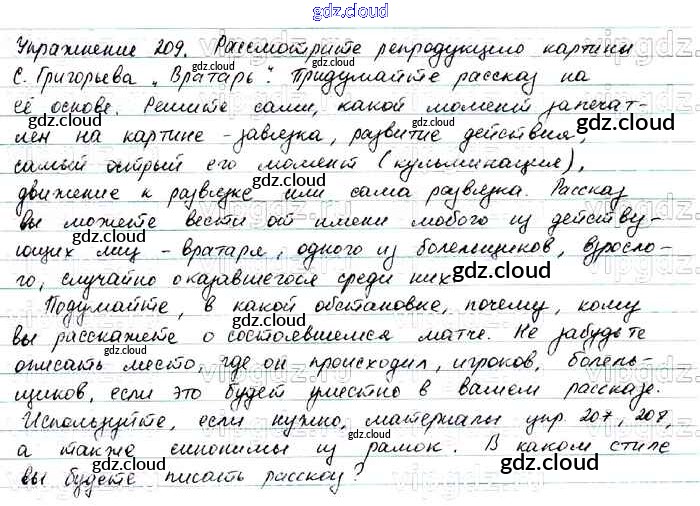 gdz.cloud
Упражнение 209. Рассмотрите репродукцию картины
С. Григорьева „Вратарь". Придумайте рассказ на
её основе. Решите сами, какой момент запечат-
лен на картине - завязка, развитие действия,
самый острый его момент (кульминация),
движение к развязке или сама развязка. Рассказ
вы можете вести от имени любого из действу-
ющих лиц - вратаря, одного из болельщиков, взросло-
го, случайно оказавшегося среди них.
Подумайте, в какой обстановке, почему, кому
вы расскажете о состоявшемся матче. Не забудьте
описать место, где он происходил, игроков, болель-
щиков, если это будет уместно в вашем рассказе.
Используйте, если нужно, материалы упр. 207, 208,
а также синонимы из рамок. В каком стиле
вы будете писать рассказ?